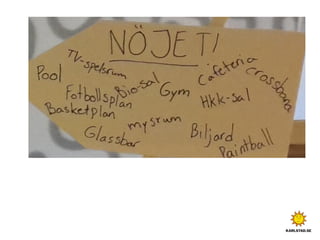 NÖJET!
TV-spelsrum
Cafeteria
Pool
Bio-sal
Gym
Crossbana
Fotbollsplan
HKK-sal
Basketplan
mysrum
Biljard
Glassbar
Paintball
KARLSTAD.SE